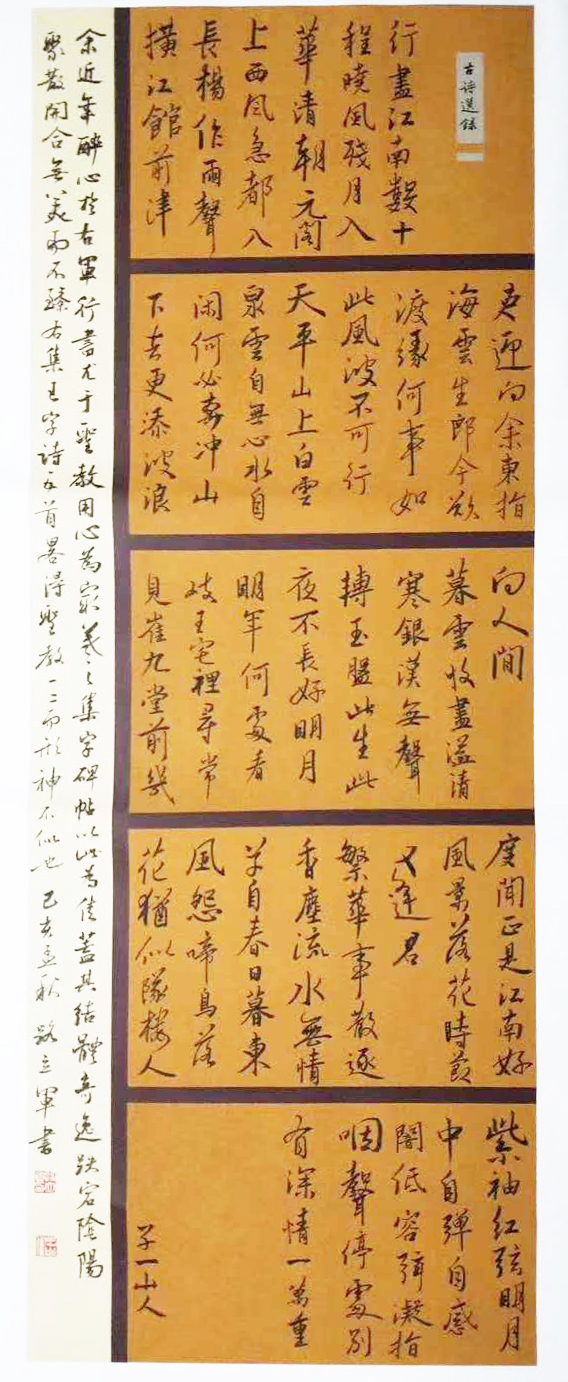 古诗选录
行盡江南數十
程曉風殘月入
華清朝元閣
上西风急都入
長楊作雨聲
橫江館前津
吏迎向余東指
海雲生郎今欲
渡緣何事如
此風波不可行
天平山上白雲
泉雲自無心水自
闲何必奔冲山
下去更添波浪
向人間
暮雲收盡溢清
寒銀漢無聲
轉玉盤此生此
夜不長好明月
明年何處看
岐王宅裡尋常
見崔九堂前幾
度聞正是江南好
風景落花時節
又逢君
繁華事散逐
香塵流水無情
草自春日暮東
風怨啼鳥落
花猶似墜樓人
紫袖红弦明月
中自彈自感
闇低容弹凝指
咽聲停處別
有深情一萬重
子一山人
余近年醉心於右軍行書尤于聖教用心為最羲之集字碑帖以此为佳蓋其結體奇逸跌宕陰陽
聚散開合無美而不臻右集王字詩五首畧得聖教一二而形神不似也 己亥孟秋 路立軍書